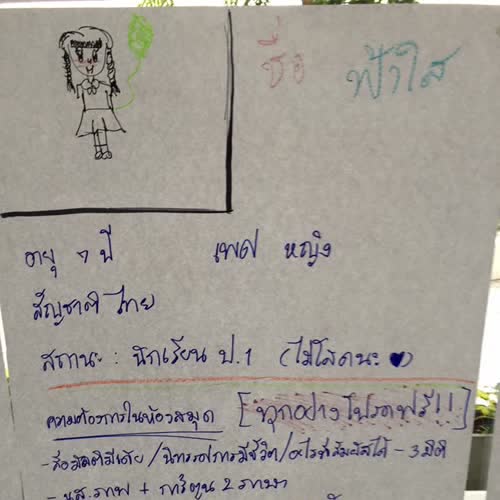 ชื่อ ฟ้าใส
อายุ ๗ ปี เพศ หญิง
สัญชาติ ไทย
สถานะ : นักเรียน ป.1 (ไม่โสดนะ ♥)
ความต้องการในห้องสมุด [ทุกอย่างโปรดฟรี!!]
- สื่อมัลติมีเดีย / นิทรรศการมีชีวิต / อะไรที่สัมผัสได้ - 3 มิติ
- นส.ภาพ + การ์ตูน 2 ภาษา